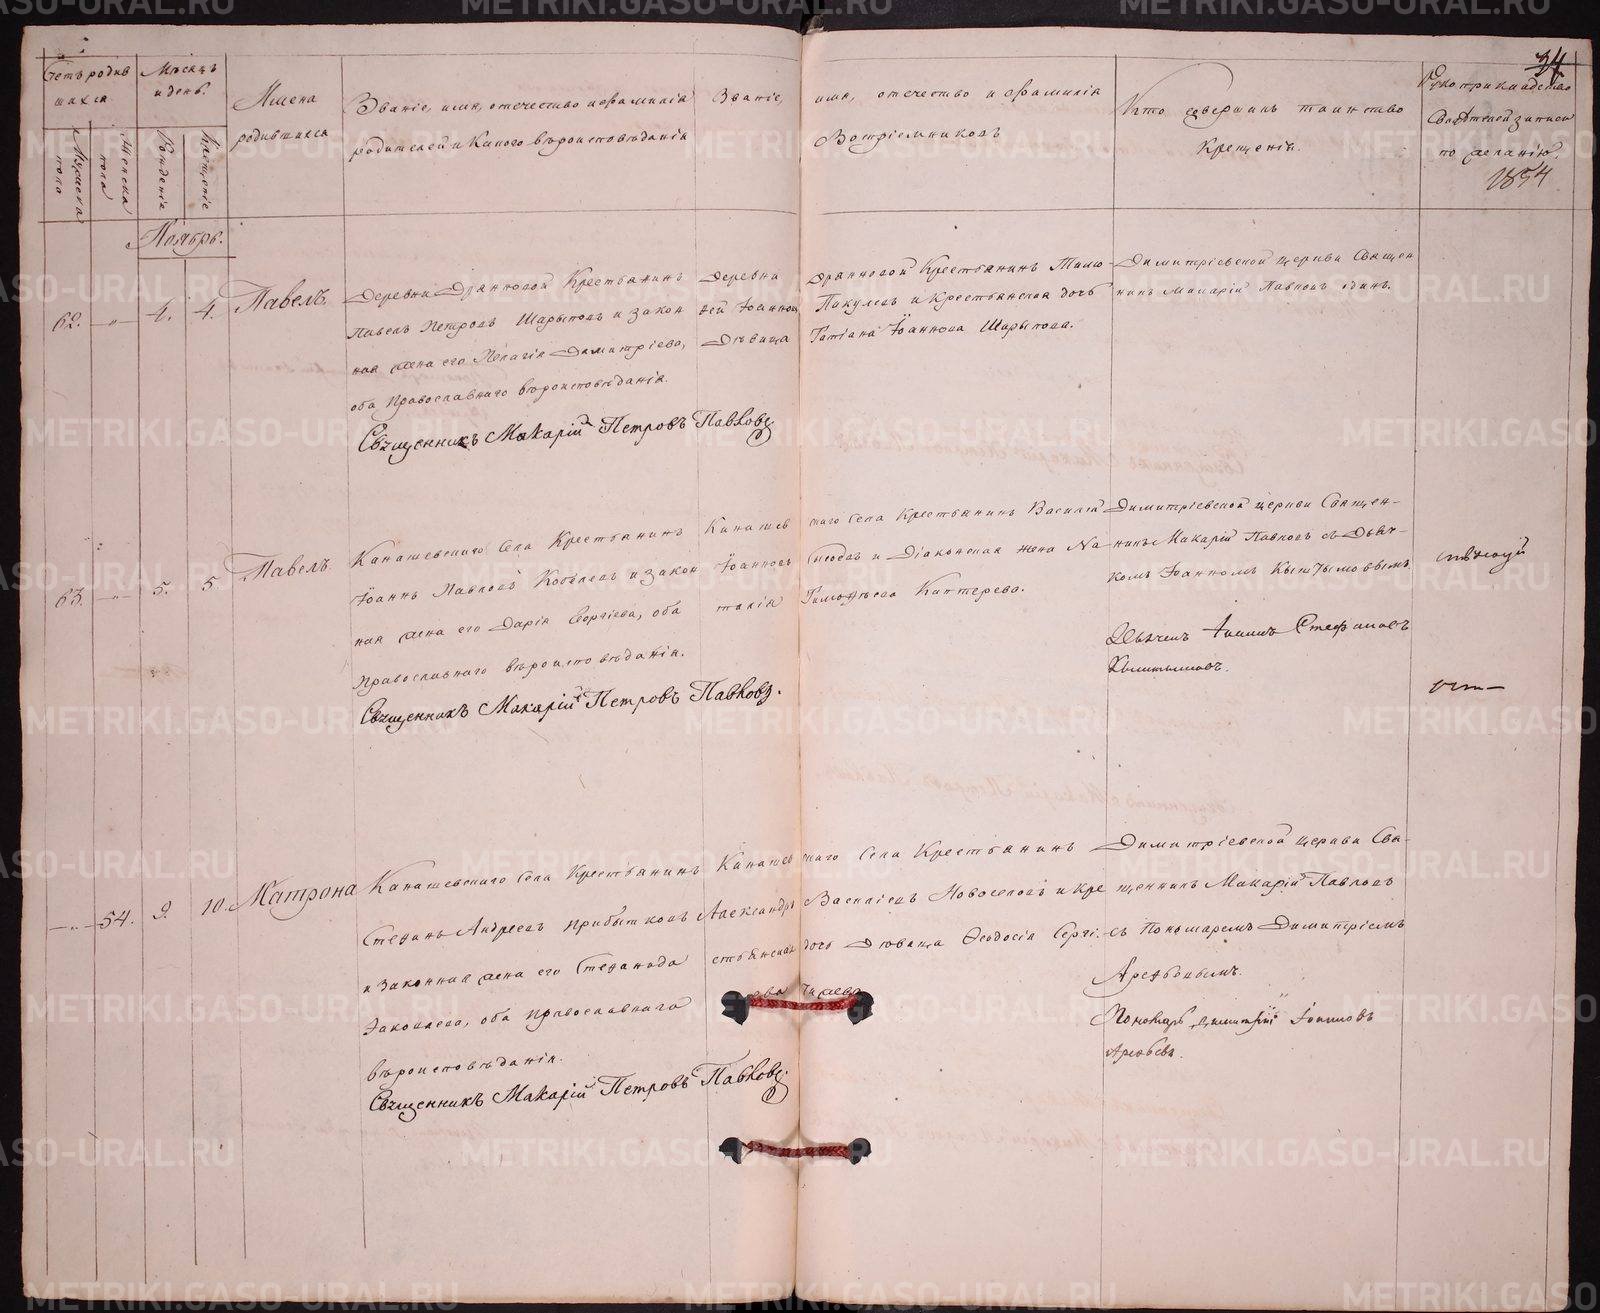 Счетъ родив
шихся
Мѣсяцъ
и день.
Имена
родившихся
Званіе, имя, отечество и фамилія
родителей и какого вѣроисповѣданія
Званіе,
имя, отечество и фамилія
Воспріемниковъ
Кто совершилъ таинство
Крещенія.
Рукоприкладство
свидѣтелей записи
по желанію.
34
1854
Мужеска пола
Женска пола
Рожденіе
Крещеніе
Ноябрь.
62. — " — 1. 4. Павелъ.
Деревни Драниковой Крестьянинъ
Павелъ Петровъ Шарыповъ и закон
ная жена его Пелагія Димитріева,
оба Православнаго вѣроисповѣданія.
Священникъ Макарій Петровъ Павловъ
Деревни
Дѣвица
Крестьянинъ
Пакулевъ и Крестьянская дочь
Татіана Іоаннова Шарыпова.
Димитріевской церкви Священ
никъ Макарій Павловъ одинъ.
63. — " — 5. 5 Павелъ.
Канашевскаго Села Крестьянинъ
Іоаннъ Павловъ Кобелевъ и закон
ная жена его Дарія Георгіева, оба
Православнаго вѣроисповѣданія.
Священникъ Макарій Петровъ Павловъ.
Канашев
Іоанновъ
талія
скаго Села Крестьянинъ Василій
и Діаконская жена На
Тимоѳеева Каптерева.
Димитріевской церкви Священ-
никъ Макарій Павловъ съ Дьяч-
комъ Іоанномъ
Дьячекъ Іоаннъ Стефановъ
— " — 54. 9. 10. Матрона
Канашевскаго Села Крестьянинъ
Стефанъ Андреевъ Прибытковъ
и законная жена его Стефанида
Іаковлева, оба Православнаго
вѣроисповѣданія.
Священникъ Макарій Петровъ Павловъ.
Канашев
Александръ
стьянская
скаго Села Крестьянинъ
Василіевъ Новоселовъ и кре
дочь Дѣвица Ѳеодосія Сергі-
ева
Димитріевской церкви Свя-
щенникъ Макарій Павловъ
съ Пономаремъ Димитріемъ
Арефьевымъ.
Пономарь Димитрій Іоанновъ
Арефьевъ.
METRIKI.GASO-URAL.RU